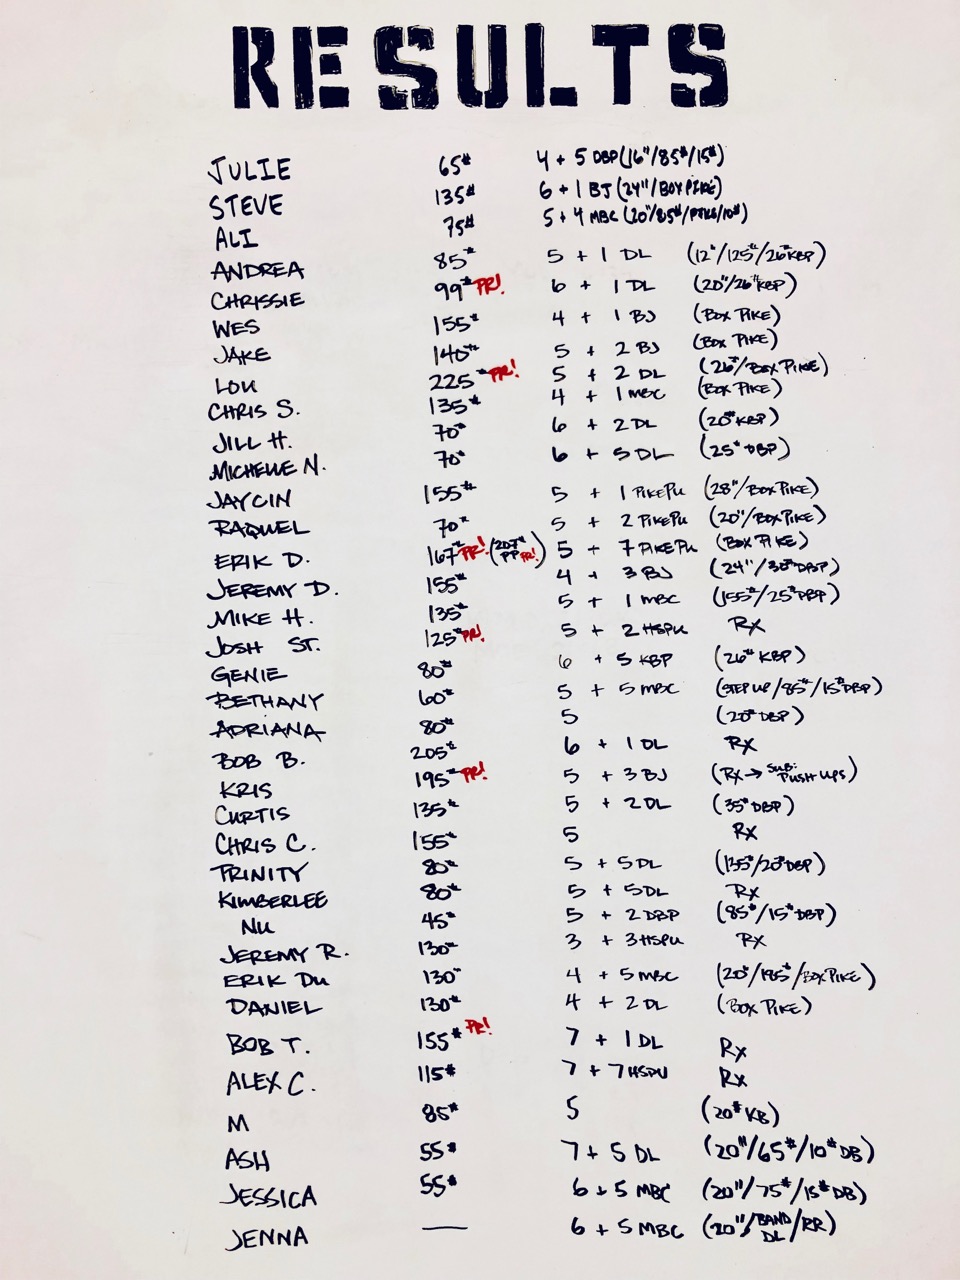 RESULTS
JULIE 65# 4 + 5 DBP (16"/85#/15#)
STEVE 135# 6 + 1 BJ (24"/BOX PIKE)
ALI 75# 5 + 4 MBC (20"/85#/PIKE/10#)
ANDREA 85# 5 + 1 DL (12"/125#/26# KBP)
CHRISSIE 99# PR! 6 + 1 DL (20"/26# KBP)
WES 155# 4 + 1 BJ (BOX PIKE)
JAKE 140# 5 + 2 BJ (BOX PIKE)
LOU 225# PR! 5 + 2 DL (26"/BOX PIKE)
CHRIS S. 135# 4 + 1 MBC (BOX PIKE)
JILL H. 70# 6 + 2 DL (20# KBP)
MICHELLE N. 70# 6 + 5 DL (25# DBP)
JAYCIN 155# 5 + 1 PIKEPU (28"/BOX PIKE)
RAQUEL 70# 5 + 2 PIKEPU (20"/BOX PIKE)
ERIK D. 167# PR! (207# PP PR!) 5 + 7 PIKEPU (BOX PIKE)
JEREMY D. 155# 4 + 3 BJ (24"/30# DBP)
MIKE H. 135# 5 + 1 MBC (155#/25# DBP)
JOSH ST. 125# PR! 5 + 2 HSPU RX
GENIE 80# 6 + 5 KBP (26# KBP)
BETHANY 60# 5 + 5 MBC (STEP UP/85#/15# DBP)
ADRIANA 80# 5 (20# DBP)
BOB B. 205# 6 + 1 DL RX
KRIS 195# PR! 5 + 3 BJ (RX → SUB: PUSH UPS)
CURTIS 135# 5 + 2 DL (35# DBP)
CHRIS C. 155# 5 RX
TRINITY 80# 5 + 5 DL (135#/20# DBP)
KIMBERLEE 80# 5 + 5 DL RX
NU 45# 5 + 2 DBP (85#/15# DBP)
JEREMY R. 130# 3 + 3 HSPU RX
ERIK DU 130# 4 + 5 MBC (20"/185#/BOX PIKE)
DANIEL 130# 4 + 2 DL (BOX PIKE)
BOB T. 155# PR! 7 + 1 DL RX
ALEX C. 115# 7 + 7 HSPU RX
M 85# 5 (20# KB)
ASH 55# 7 + 5 DL (20"/65#/10# DB)
JESSICA 55# 6 + 5 MBC (20"/75#/15# DB)
JENNA — 6 + 5 MBC (20"/BAND DL/RR)